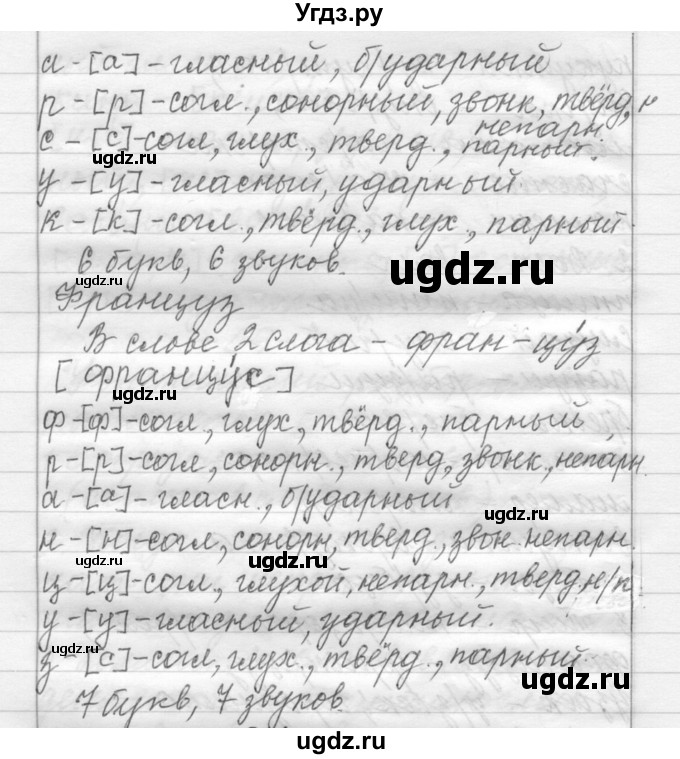 Угдз.ру
а - [а] - гласный, б/ударный
р - [р] - согл., сонорный, звонк, твёрд, н
непарн
с - [с] - согл, глух., тверд., парный.
ugdz.ru
у - [у] - гласный, ударный.
к - [к] - согл., твёрд., глух., парный.
6 букв, 6 звуков.
ugdz.ru
ugdz.ru
Француз
В слове 2 слога - фран-цу́з
[францу́с]
ugdz.ru
ф - [ф] - согл, глух, твёрд., парный
р - [р] - согл, сонорн., тверд, звонк., непарн.
а - [а] - гласн., б/ударный
ugdz.ru
н - [н] - согл, сонорн, тверд., звон. непарн.
ugdz.ru
ц - [ц] - согл, глухой, непарн., тверд, н/п
у - [у] - гласный, ударный.
ugdz.ru
з - [с] - согл, глух., твёрд., парный
ugdz.ru
7 букв, 7 звуков.
ugdz.ru